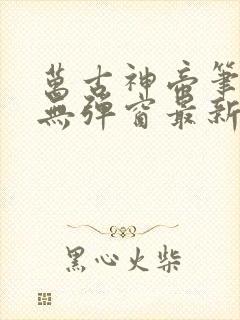 萬古神帝筆
無彈窗最新
黑心火柴